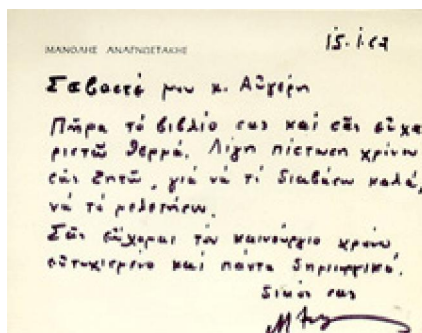 ΜΑΝΟΛΗΣ ΑΝΑΓΝΩΣΤΑΚΗΣ
15.1.62
Σεβαστέ μου κ. Αὐγέρη
Πῆρα τὸ βιβλίο σας καὶ σᾶς εὐχα
ριστῶ θερμά. Λίγη πίστωση χρόνου
σᾶς ζητῶ, γιὰ νὰ τὸ διαβάσω καλά,
νὰ τὸ μελετήσω.
Σᾶς εὔχομαι τὸν καινούργιο χρόνο
εὐτυχισμένο καὶ πάντα δημιουργικό.
δικός σας